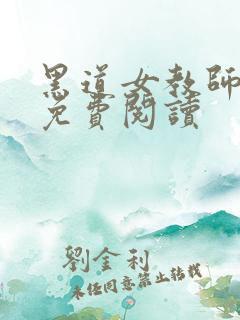 黑道女教師
免費閱讀
劉金利
未經同意禁止轉載